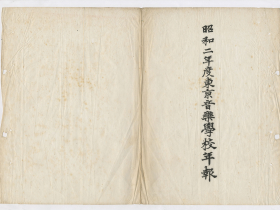 昭和二年度東京音樂學校年報